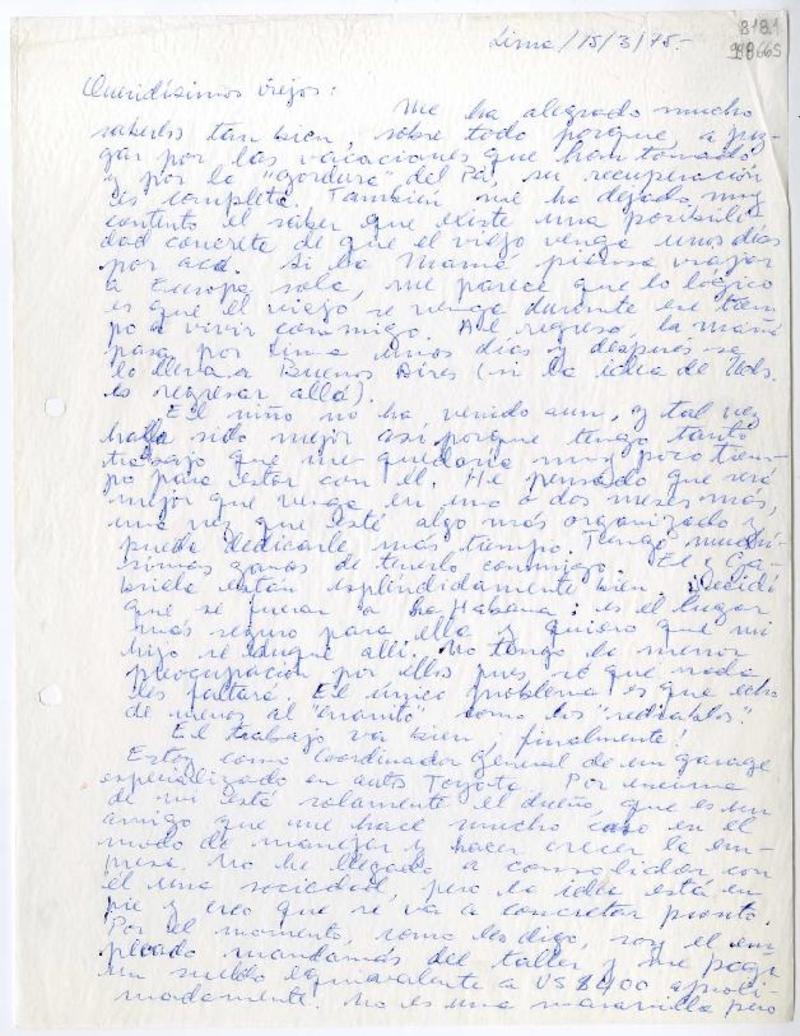 8181
998665
Lima/15/3/75.-
Queridísimos viejos:
Me ha alegrado mucho
saberlos tan bien, sobre todo porque, a juz-
gar por las vacaciones que han tomado
y por la "gordura" del Pá, su recuperación
es completa. También me ha dejado muy
contento el saber que existe una posibili-
dad concreta de que el viejo venga unos días
por acá. Si la Mamá piensa viajar
a Europa sola, me parece que lo lógico
es que el viejo se venga durante ese tiem
po a vivir conmigo. Al regreso, la mamá
pasa por Lima unos días y después se
lo lleva a Buenos Aires (si la idea de Uds.
es regresar allá).
El niño no ha venido aun, y tal vez
halla sido mejor así porque tengo tanto
trabajo que me quedaría muy poco tiem-
po para estar con él. He pensado que será
mejor que venga en uno o dos meses más,
una vez que esté algo más organizado y
pueda dedicarle más tiempo. Tengo muchí-
simas ganas de tenerlo conmigo. El y Ga-
briela están espléndidamente bien. Decidí
que se fueran a La Habana: es el lugar
más seguro para ella y quiero que mi
hijo se eduque allí. No tengo la menor
preocupación por ellos pues sé que nada
les faltará. El único problema es que echo
de menos al "enanito" como los "rediablos".
El trabajo va bien, ¡finalmente!
Estoy como Coordinador General de un garage
especializado en auto Toyota. Por encima
de mi está solamente el dueño, que es un
amigo que me hace mucho caso en el
modo de manejar y hacer crecer la em-
presa. No he llegado a consolidar con
él una sociedad, pero la idea está en
pie y creo que se va a concretar pronto.
Por el momento, como les digo, soy el em
pleado mandamás del taller y me paga
un sueldo equivalente a US$400 aproxi-
madamente. No es una maravilla pero